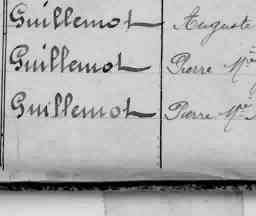 Guillemot Auguste
Guillemot Pierre M
Guillemot Pierre Mie